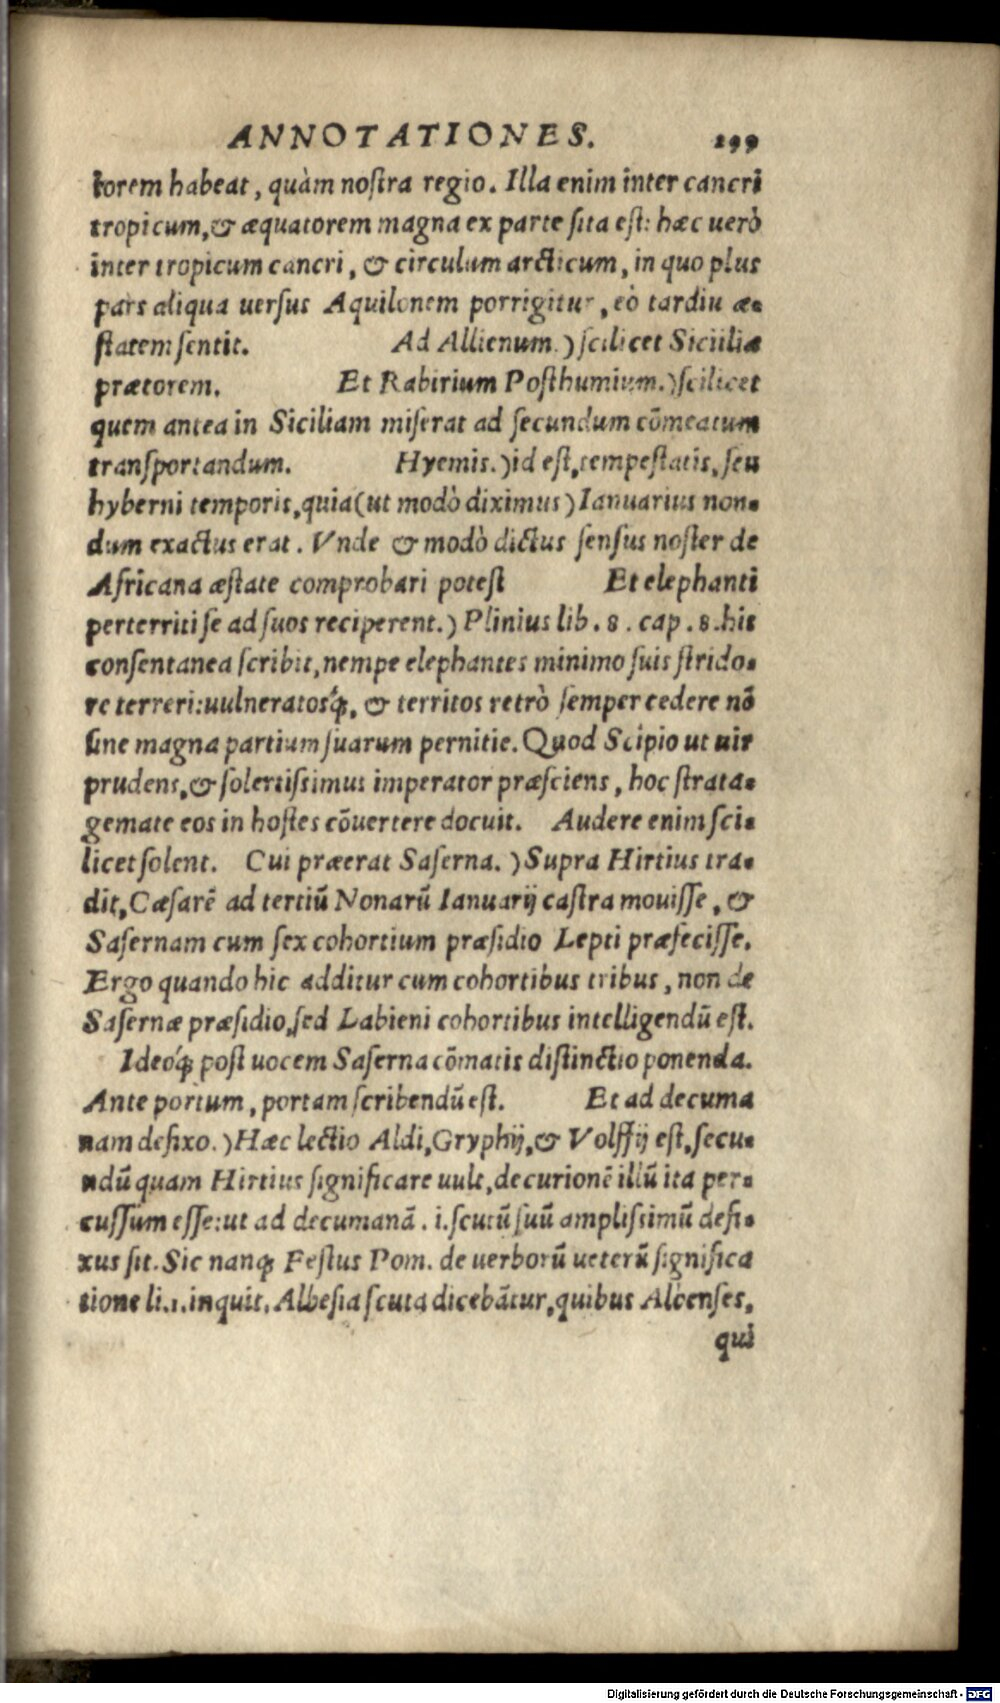 ANNOTATIONES. 199
torem habeat, quàm nostra regio. Illa enim inter cancri
tropicum, & æquatorem magna ex parte sita est: hæc uerò
inter tropicum cancri, & circulum arcticum, in quo plus
pars aliqua uersus Aquilonem porrigitur, eò tardiu æ-
statem sentit. Ad Allienum.) scilicet Siciiliæ
prætorem. Et Rabirium Posthumium.) scilicet
quem antea in Siciliam miserat ad secundum cōmeatum
transportandum. Hyemis.) id est, tempestatis, seu
hyberni temporis, quia (ut modò diximus) Ianuarius non-
dum exactus erat. Vnde & modò dictus sensus noster de
Africana æstate comprobari potest Et elephanti
perterriti se ad suos reciperent.) Plinius lib. 8. cap. 8. his
consentanea scribit, nempe elephantes minimo suis strido-
re terreri: uulneratosq́;, & territos retrò semper cedere nō
sine magna partium suarum pernitie. Quod Scipio ut uir
prudens, & solertissimus imperator præsciens, hoc strata-
gemate eos in hostes cōuertere docuit. Audere enim sci-
licet solent. Cui præerat Saserna.) Supra Hirtius tra-
dit, Cæsarē ad tertiū Nonarū Ianuarij castra mouisse, &
Sasernam cum sex cohortium præsidio Lepti præfecisse.
Ergo quando hic additur cum cohortibus tribus, non de
Sasernæ præsidio, sed Labieni cohortibus intelligendū est.
Ideoq́; post uocem Saserna cōmatis distinctio ponenda.
Ante portum, portam scribendū est. Et ad decuma
nam defixo.) Hæc lectio Aldi, Gryphij, & Volffij est, secu-
ndū quam Hirtius significare uult, decurionē illū ita per-
cussum esse: ut ad decumanā. i. scutū suū amplissimū defi-
xus sit. Sic nanq; Festus Pom. de uerborū ueterū significa
tione li.1. inquit. Albesia scuta dicebātur, quibus Albenses,
qui
Digitalisierung gefördert durch die Deutsche Forschungsgemeinschaft - DFG